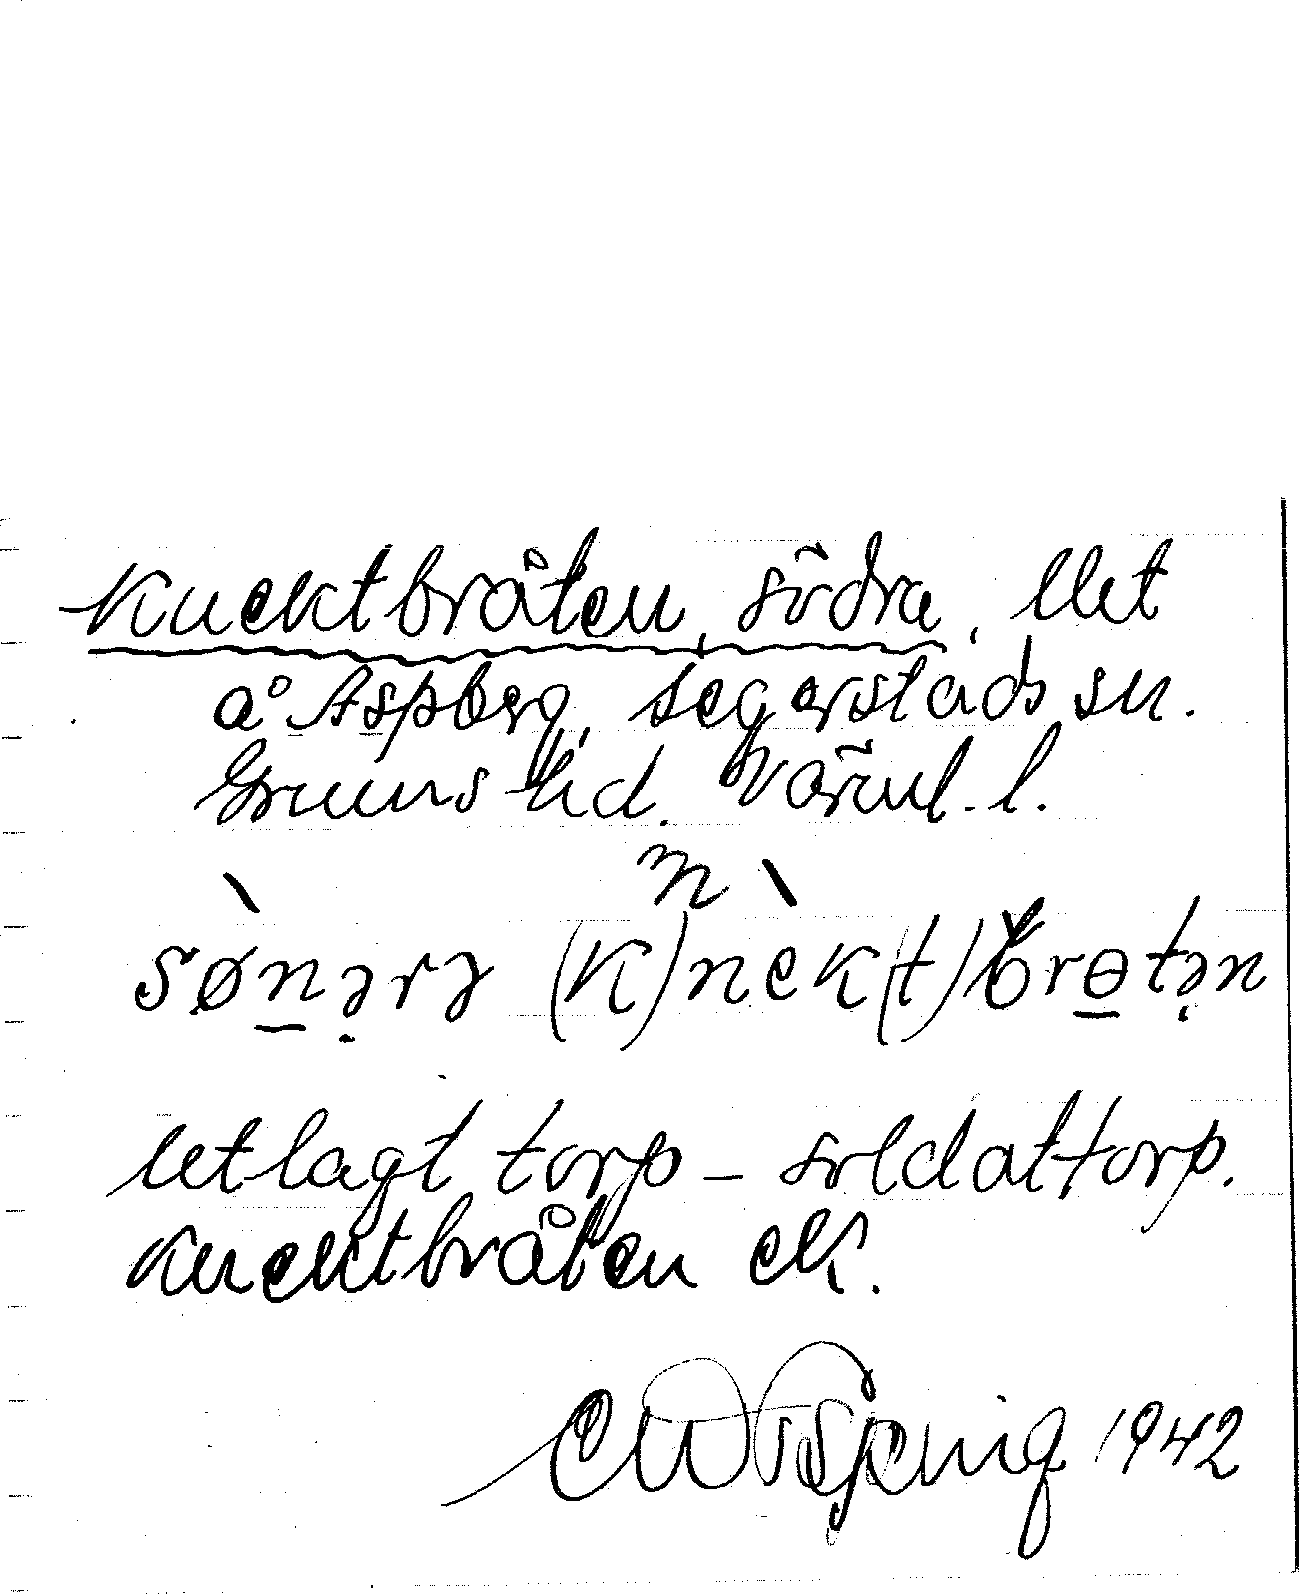 Knektbråten, södra, lht
å Aspberg, Segerstads sn.
Grums hd. Värml. l.
n
sø̀n̲ərə (k)nὲk(t)brɵ̲tən
Utlagt torp – soldattorp.
Knektbråten ek.
1942